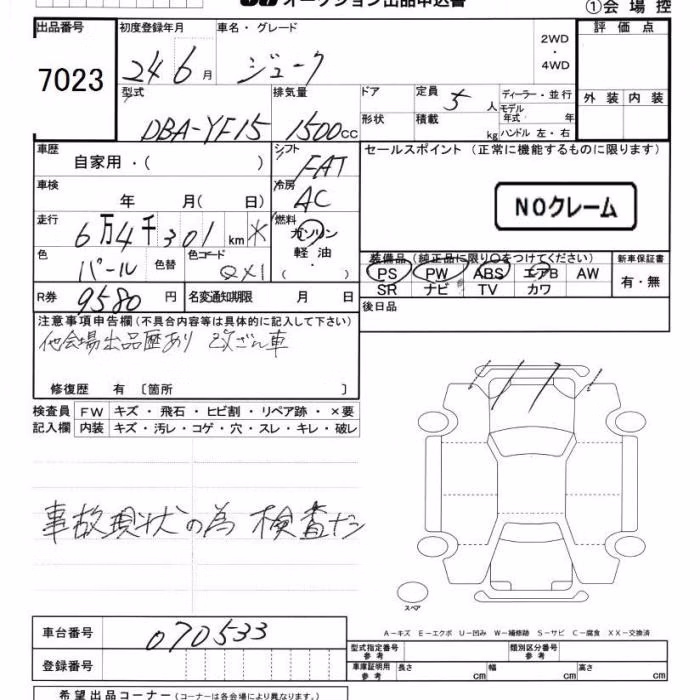 オークション出品申込書
①会場控
出品番号 初度登録年月 車名・グレード 2WD ・ 4WD 評価点
7023 24 6月 ジューク
型式 排気量 ドア 定員 5人 ディーラー・並行 外装 内装
モデル年式 年
DBA-YF15 1500cc 形状 積載 kg ハンドル 左・右
車歴 シフト セールスポイント(正常に機能するものに限ります)
自家用・( ) FAT
車検 冷房
年 月( 日) AC NOクレーム
走行 燃料
6万4千301km ガソリン
色 色替 色コード 軽油
パール QX1 ( ・ )
装備品(純正品に限り○をつけてください) 新車保証書
PS PW ABS エアB AW 有・無
SR ナビ TV カワ
R券 9580円 名変通知期限 月 日 後日品
注意事項申告欄(不具合内容等は具体的に記入して下さい)
他会場出品歴あり 改ざん車
修復歴 有〔箇所 〕
検査員 FW キズ・飛石・ヒビ割・リペア跡・×要
記入欄 内装 キズ・汚レ・コゲ・穴・スレ・キレ・破レ
事故現状の為 検査ナシ
スペア
車台番号 070533
A-キズ E-エクボ U-凹み W-補修跡 S-サビ C-腐食 XX-交換済
登録番号
型式指定番号 参考 類別区分番号 参考
車庫証明用 参考 長さ cm 幅 cm 高さ cm
希望出品コーナー(コーナーは各会場により異なります)